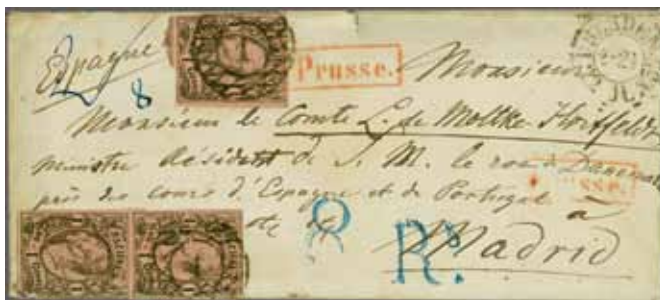 Espagne
Prusse.
Monsieur
8
Monsieur le Comte L. de Moltke Hvitfeldt
ministre résident de S. M. le roi de Danemark
Prusse.
près des cours d'Espagne et de Portugal à
8 R.
Madrid